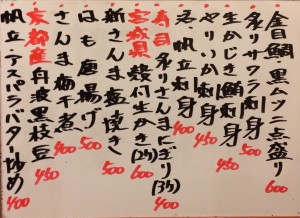 金目鯛 黒ムツ二点盛り 600
炙りサワラ刺身 500
生かじき鮪刺身 450
やりいか刺身 450
活帆立刺身 400
寿司 炙りさんまにぎり(3ケ) 400
宮城県 殻付生かき(2ケ) 600
新さんま塩焼き 500
はも唐揚げ 500
さんま梅干煮 400
京都産丹波黒枝豆 450
帆立・アスパラバター炒め 400